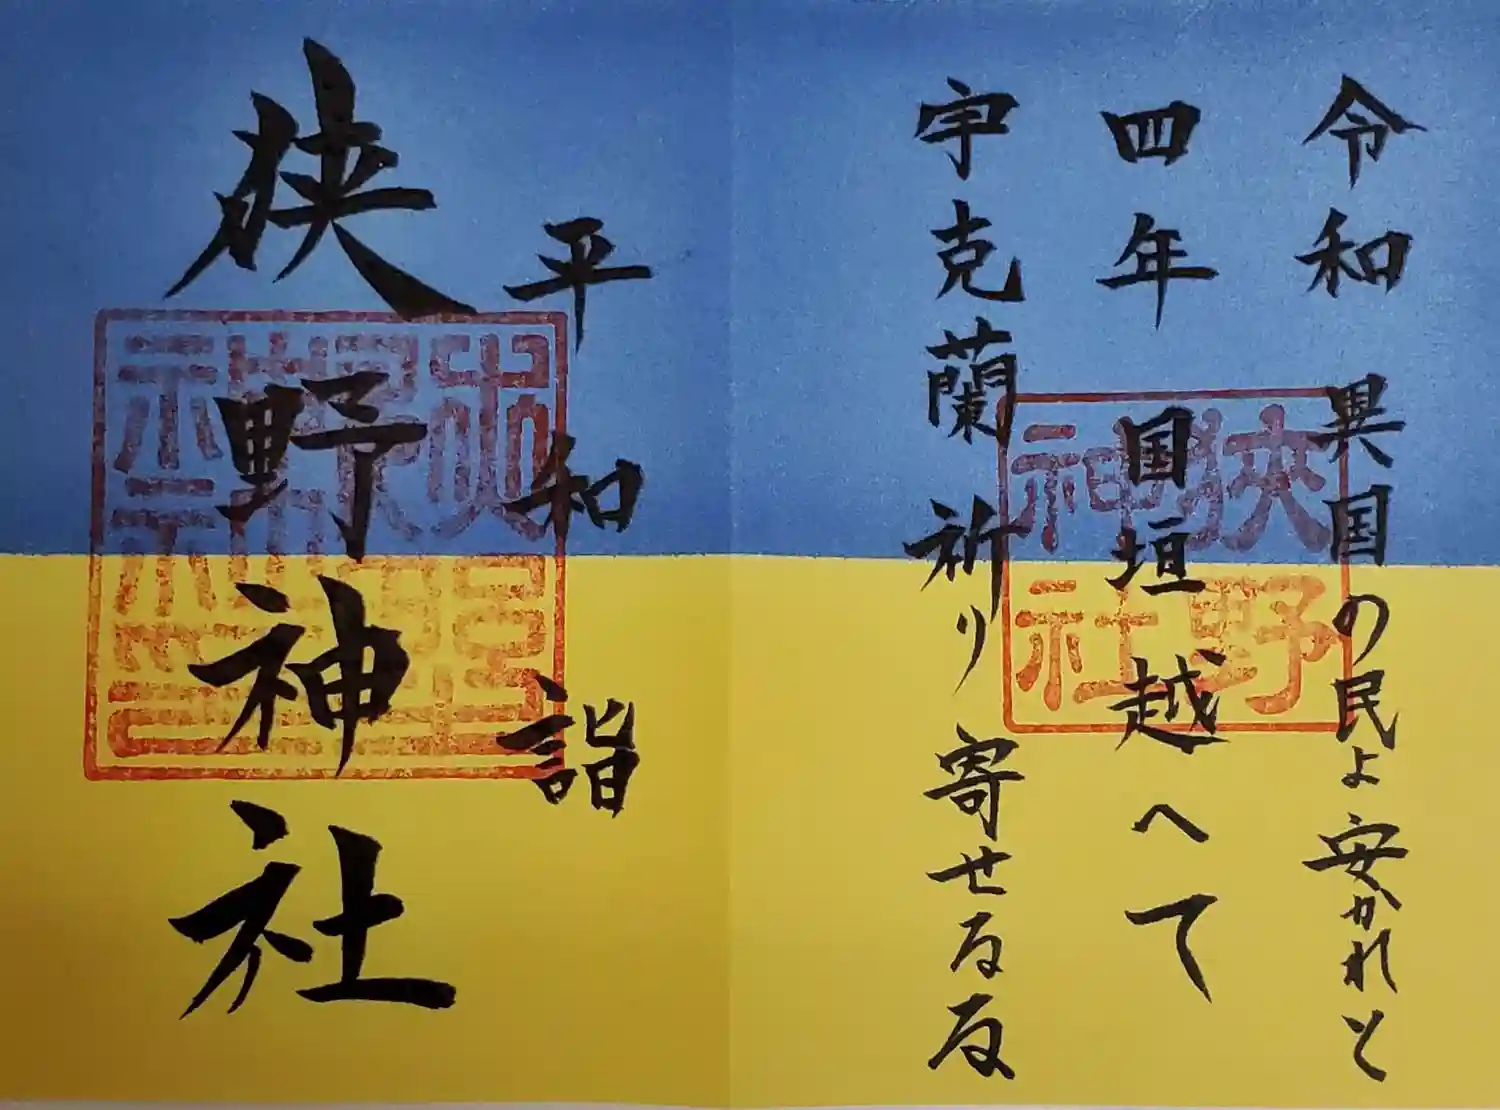 令和 異国の民よ安かれと
四年 国垣越へて
宇克蘭 祈り寄せるる
狭野
神社
平和詣
狹野神社